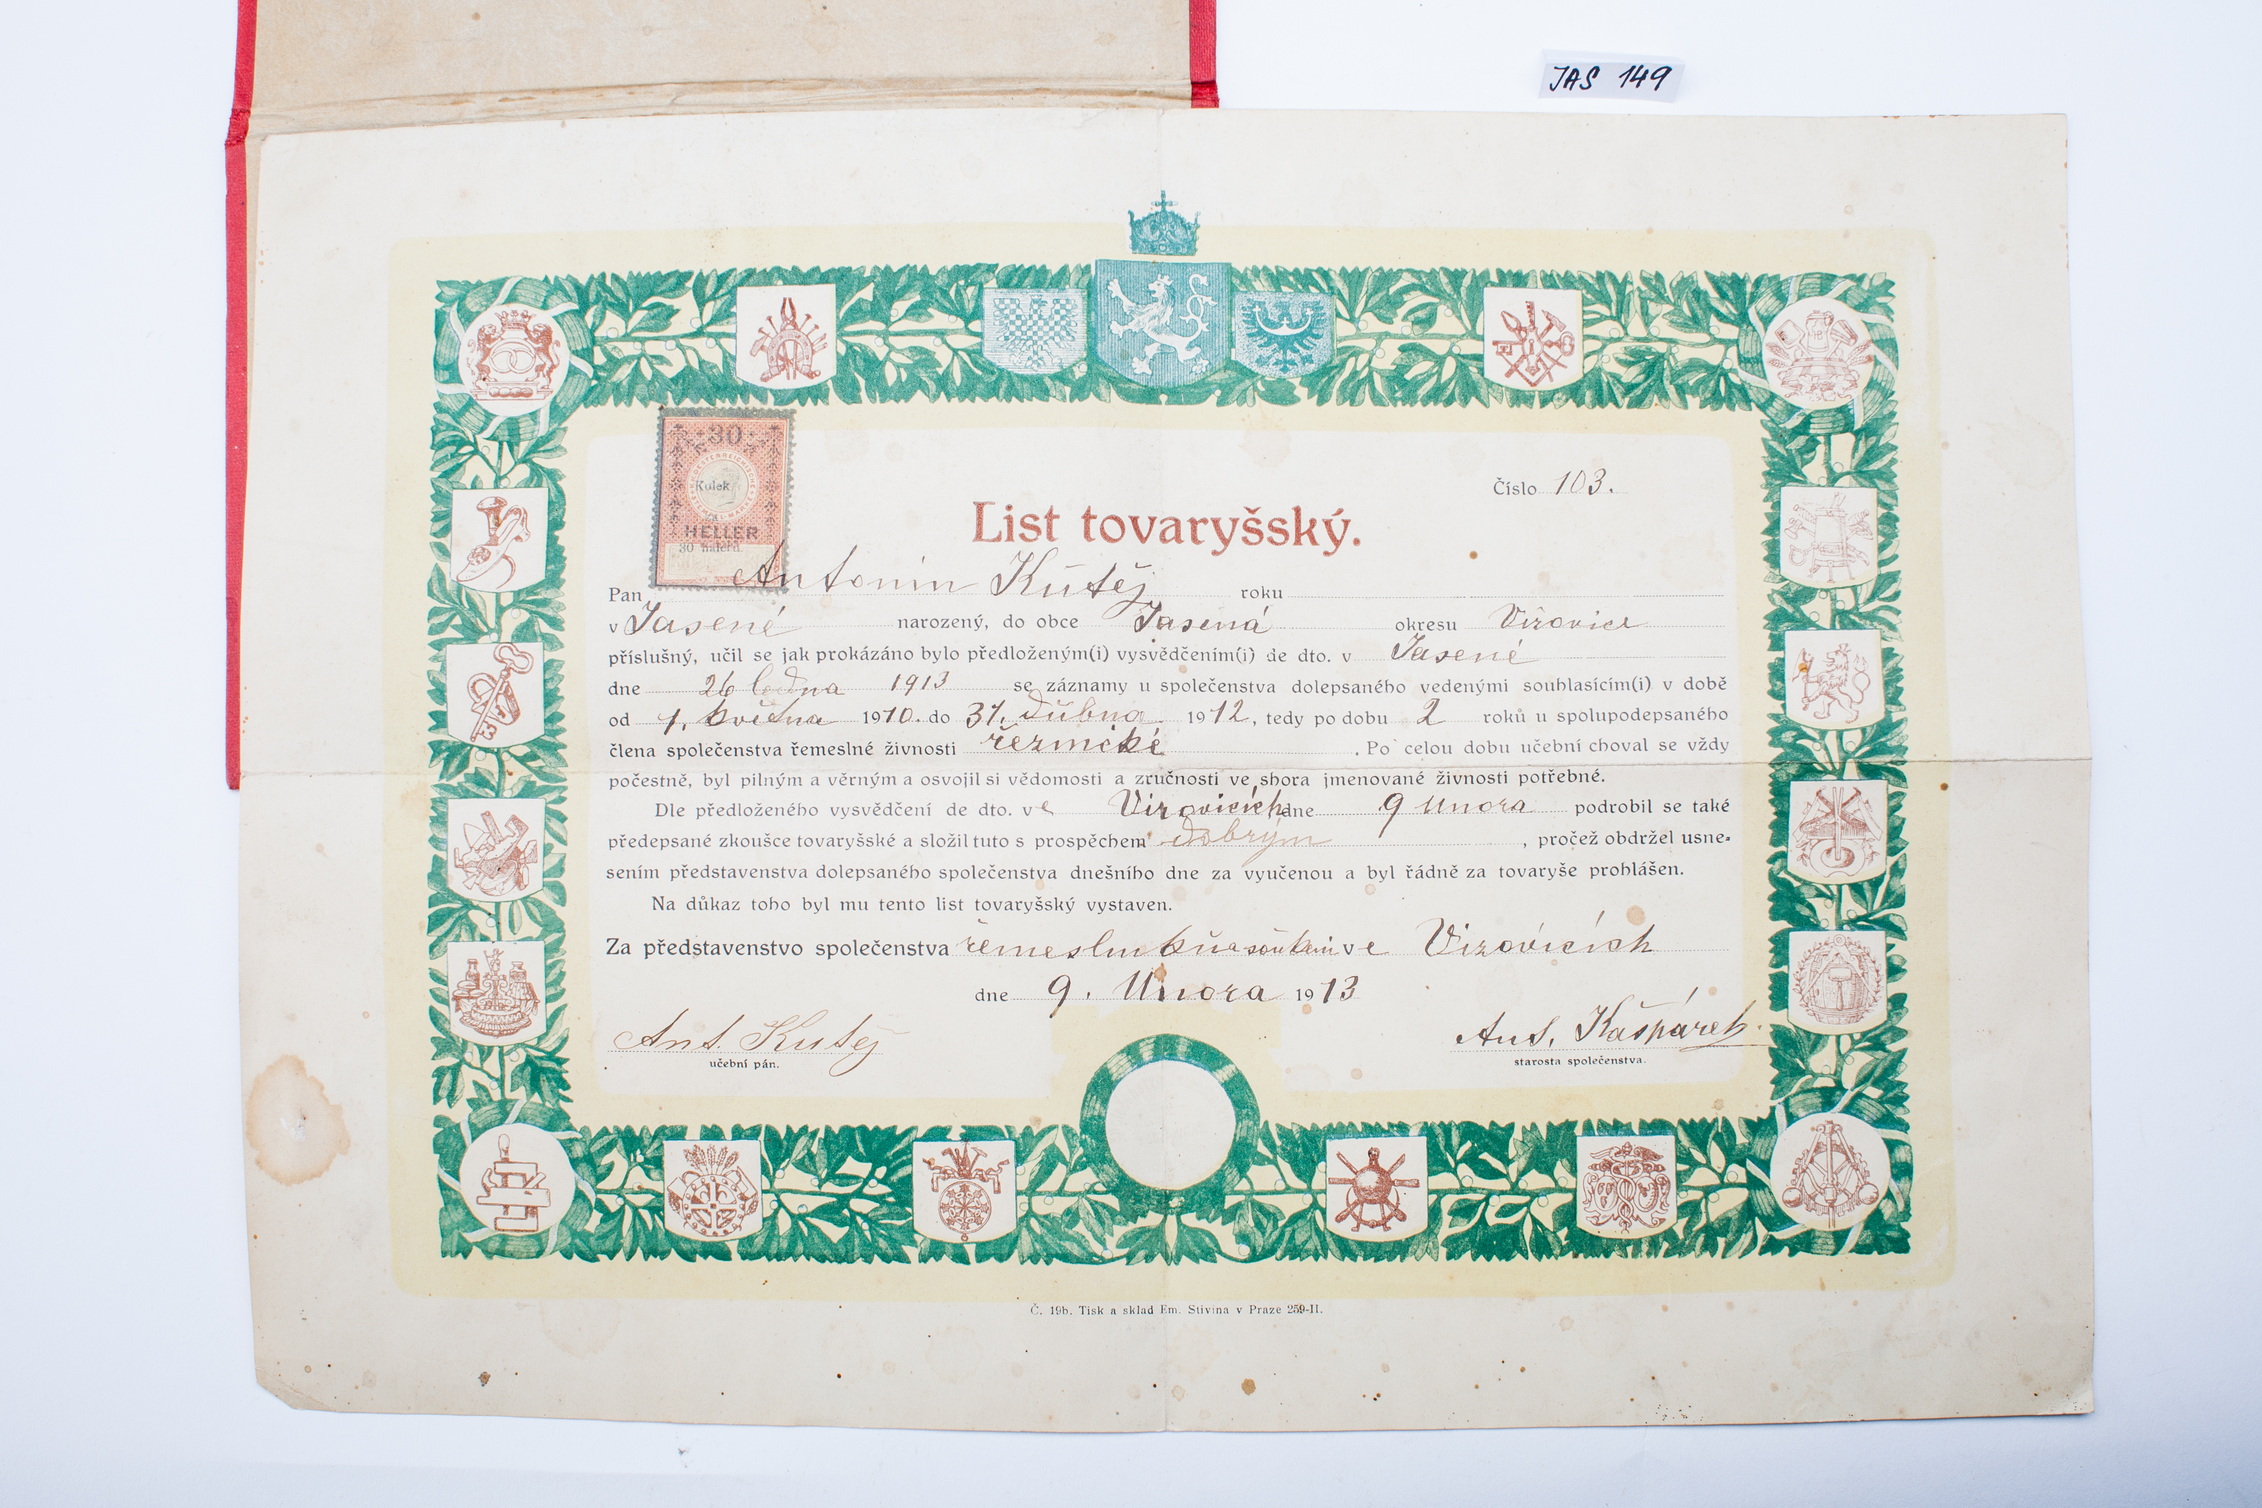 JAS 149
30
OESTERREICHISCHE
Kolek
HELLER
30 haléřů
Číslo 103.
List tovaryšský.
Pan Antonín Kutěj roku
v Jasené narozený, do obce Jasená okresu Vizovice
příslušný, učil se jak prokázáno bylo předloženým(i) vysvědčením(i) de dto. v Jasené
dne 26 ledna 1913 se záznamy u společenstva dolepsaného vedenými souhlasícím(i) v době
od 1. května 1910. do 31. dubna 1912, tedy po dobu 2 roků u spolupodepsaného
člena společenstva řemeslné živnosti řeznické . Po celou dobu učební choval se vždy
počestně, byl pilným a věrným a osvojil si vědomosti a zručnosti ve shora jmenované živnosti potřebné.
Dle předloženého vysvědčení de dto. ve Vizovicích dne 9 Února podrobil se také
předepsané zkoušce tovaryšské a složil tuto s prospěchem dobrým , pročež obdržel usne-
sením představenstva dolepsaného společenstva dnešního dne za vyučenou a byl řádně za tovaryše prohlášen.
Na důkaz toho byl mu tento list tovaryšský vystaven.
Za představenstvo společenstva ve Vizovicích
dne 9. Února 1913
Ant. Kutěj
učební pán.
Ant. Kašpárek
starosta společenstva.
Č. 19b. Tisk a sklad Em. Stivína v Praze 259-II.